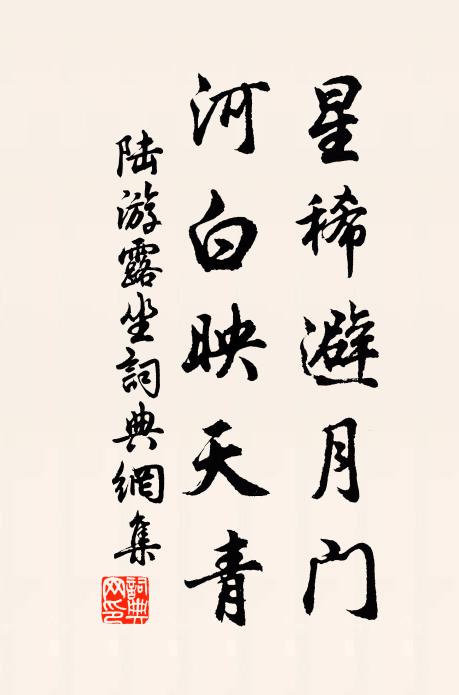 星稀避月门
河白映天青
陆游露坐詞典網集
詞典
网印